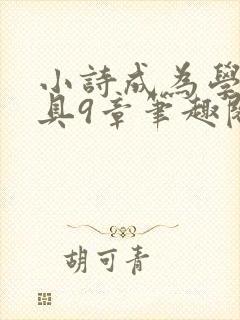 小詩成為學
具9章筆趣閣
胡可青